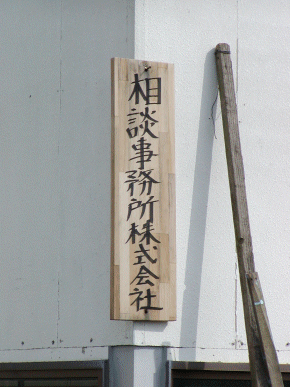 相談事務所株式会社